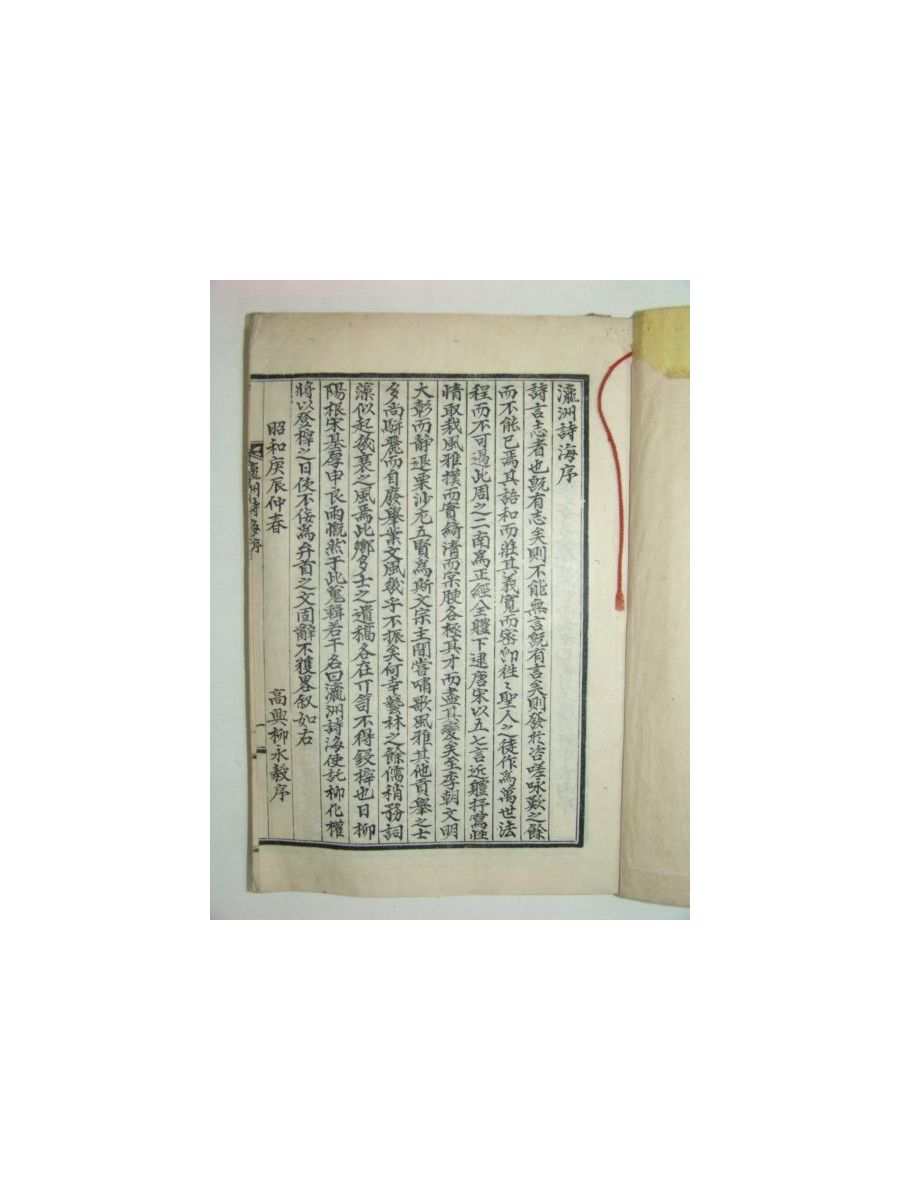 瀛洲詩海序
詩言志者也旣有志矣則不能無言旣有言矣則發於咨嗟咏歎之餘
而不能已焉其語和而莊其義寬而密仰惟〻聖人之徒作爲萬世法
程而不可過此周之二南爲正經全軆下逮唐宋以五七言近軆抒寫性
情取裁風雅撲而實綺淸而腴各極其才而盡其變矣至李朝文明
大彰而靜退栗沙尤五賢爲斯文宗主間嘗嘯歌風雅其他貢擧之士
多尙騈儷而自廢擧業文風幾乎不振矣何幸藝林之餘儒稍務詞
藻似起幾衰之風焉此鄕多士之遺稿各在巾笥不得鋟榟也日柳
陽根宋基厚申良雨慨然于此蒐輯若干名曰瀛洲詩海使託柳化權
將以登榟之日使不佞爲弁首之文固辭不獲畧叙如右
昭和庚辰仲春 高興柳永毅序
瀛州詩海序